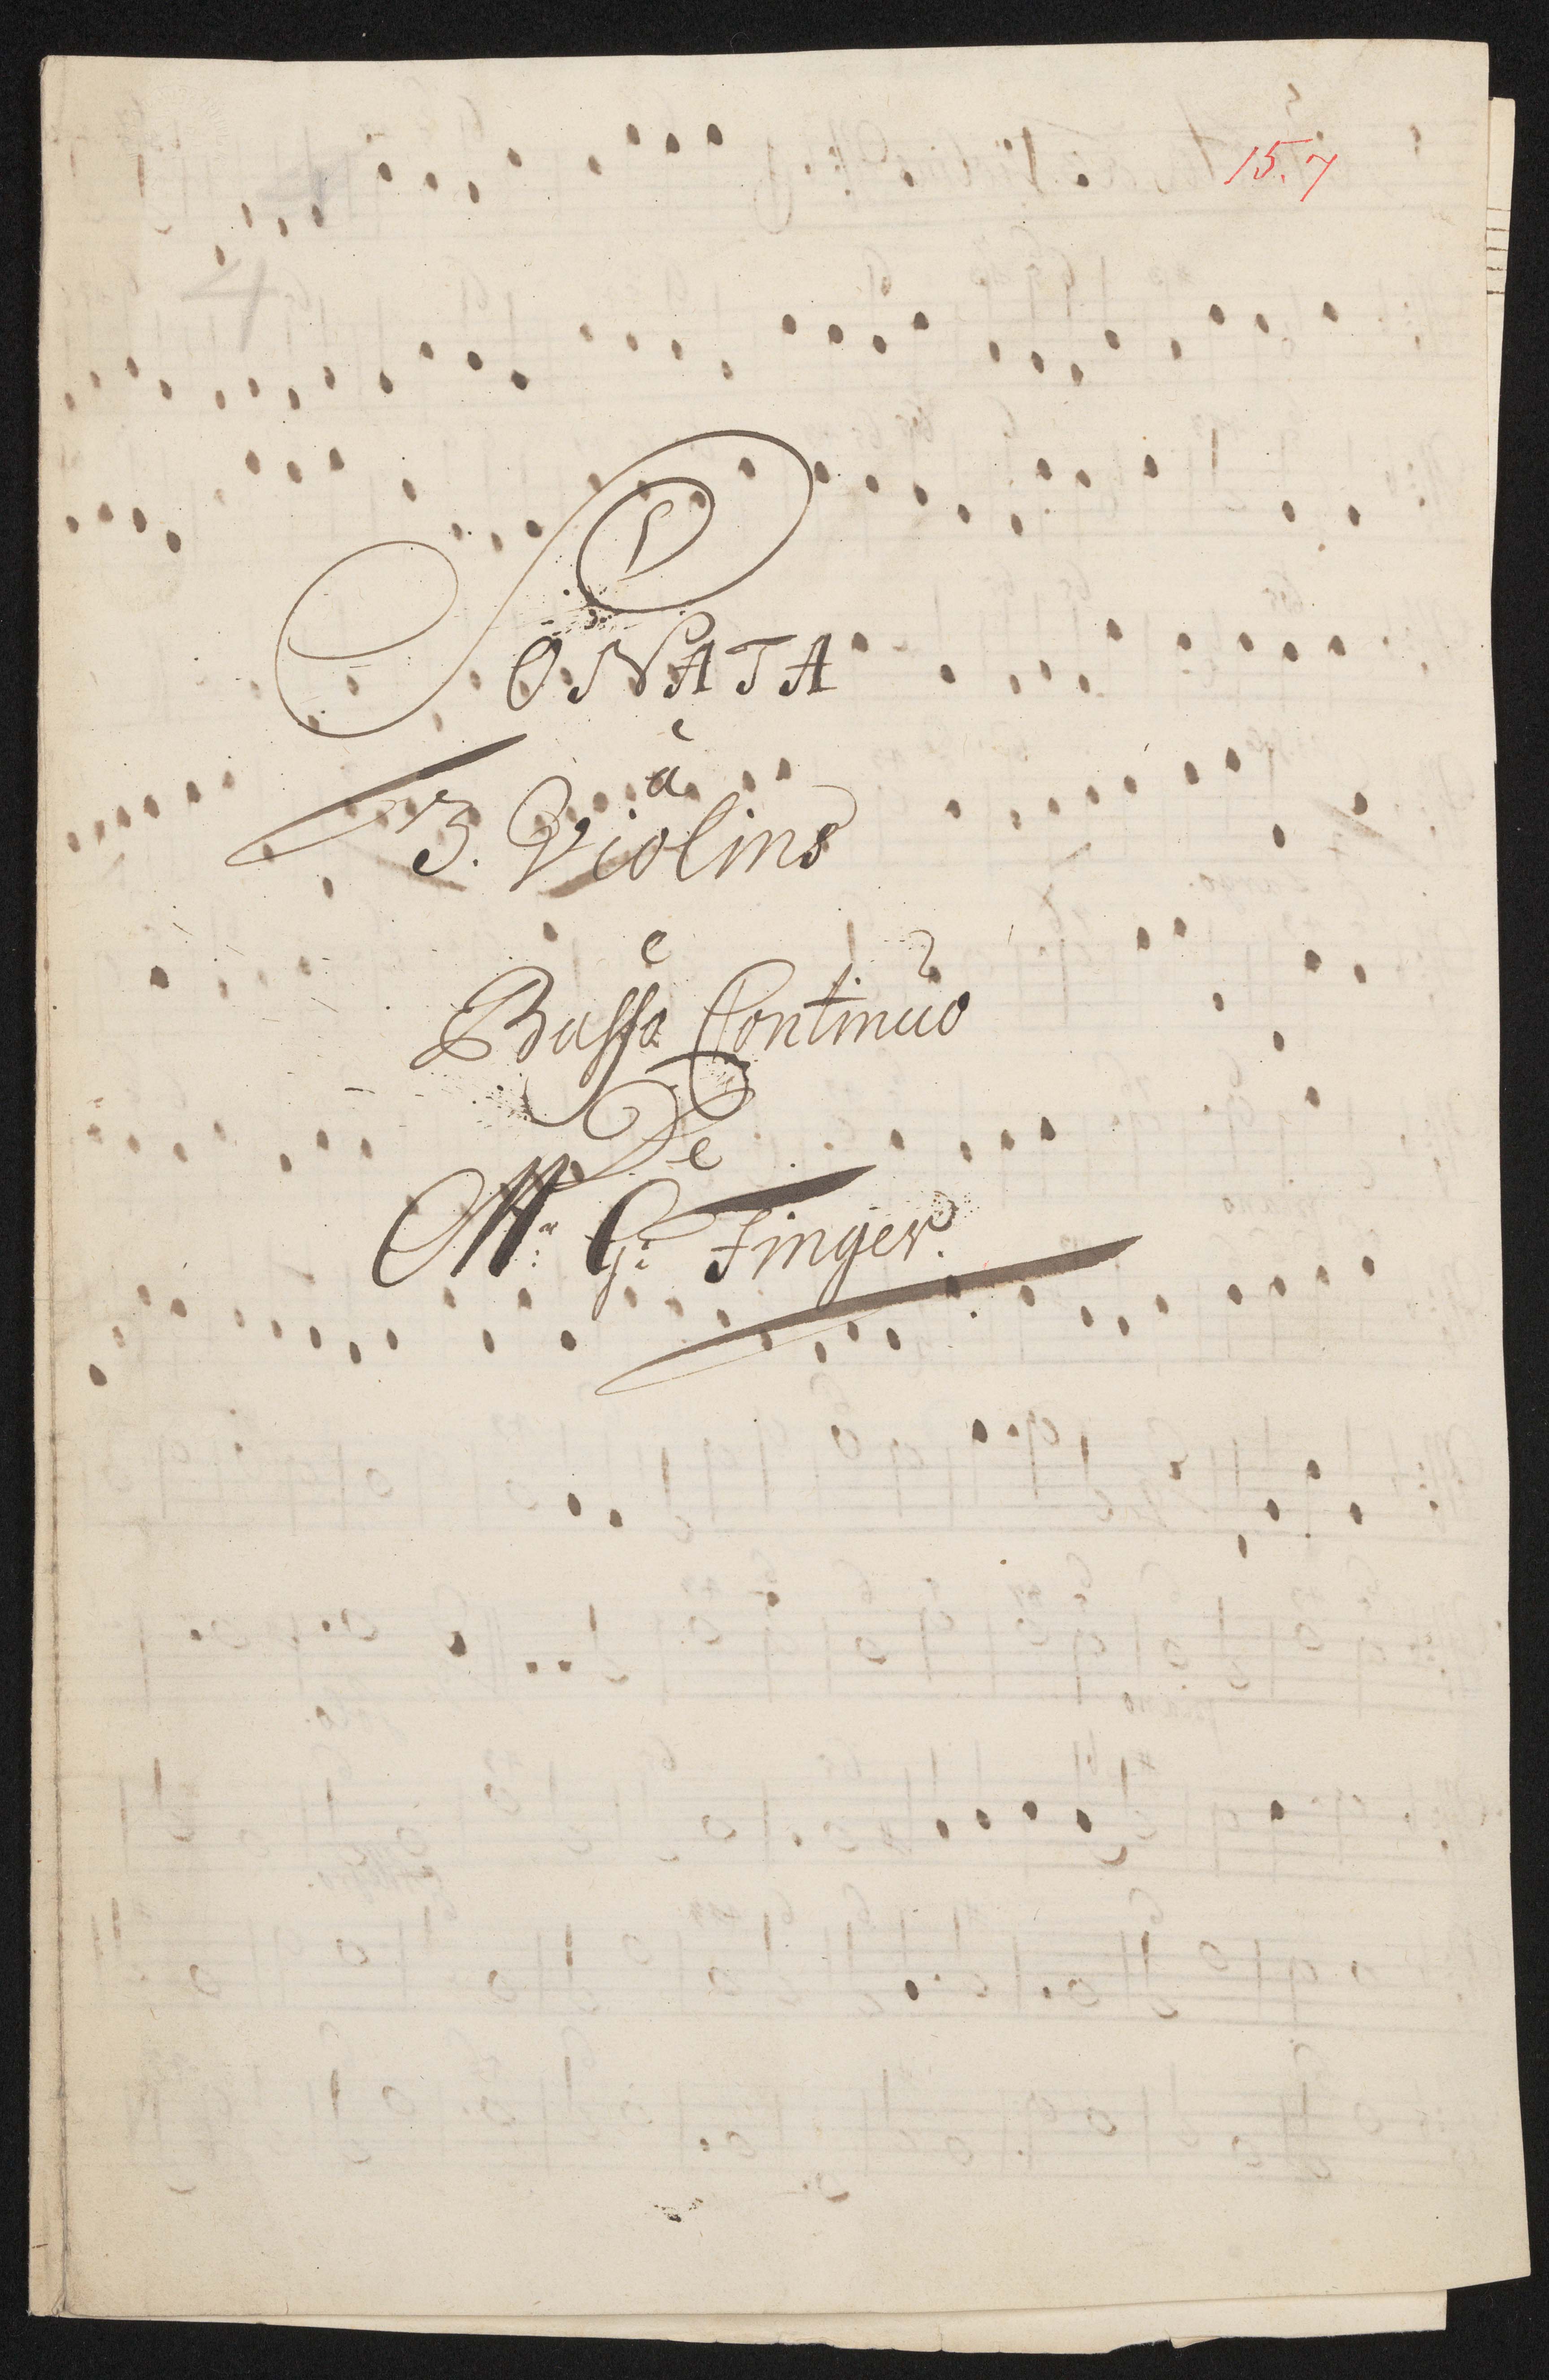 15.7
4
SONATA
à
3. Violins
e
Basso Continuo
De
Mr: G: Finger.